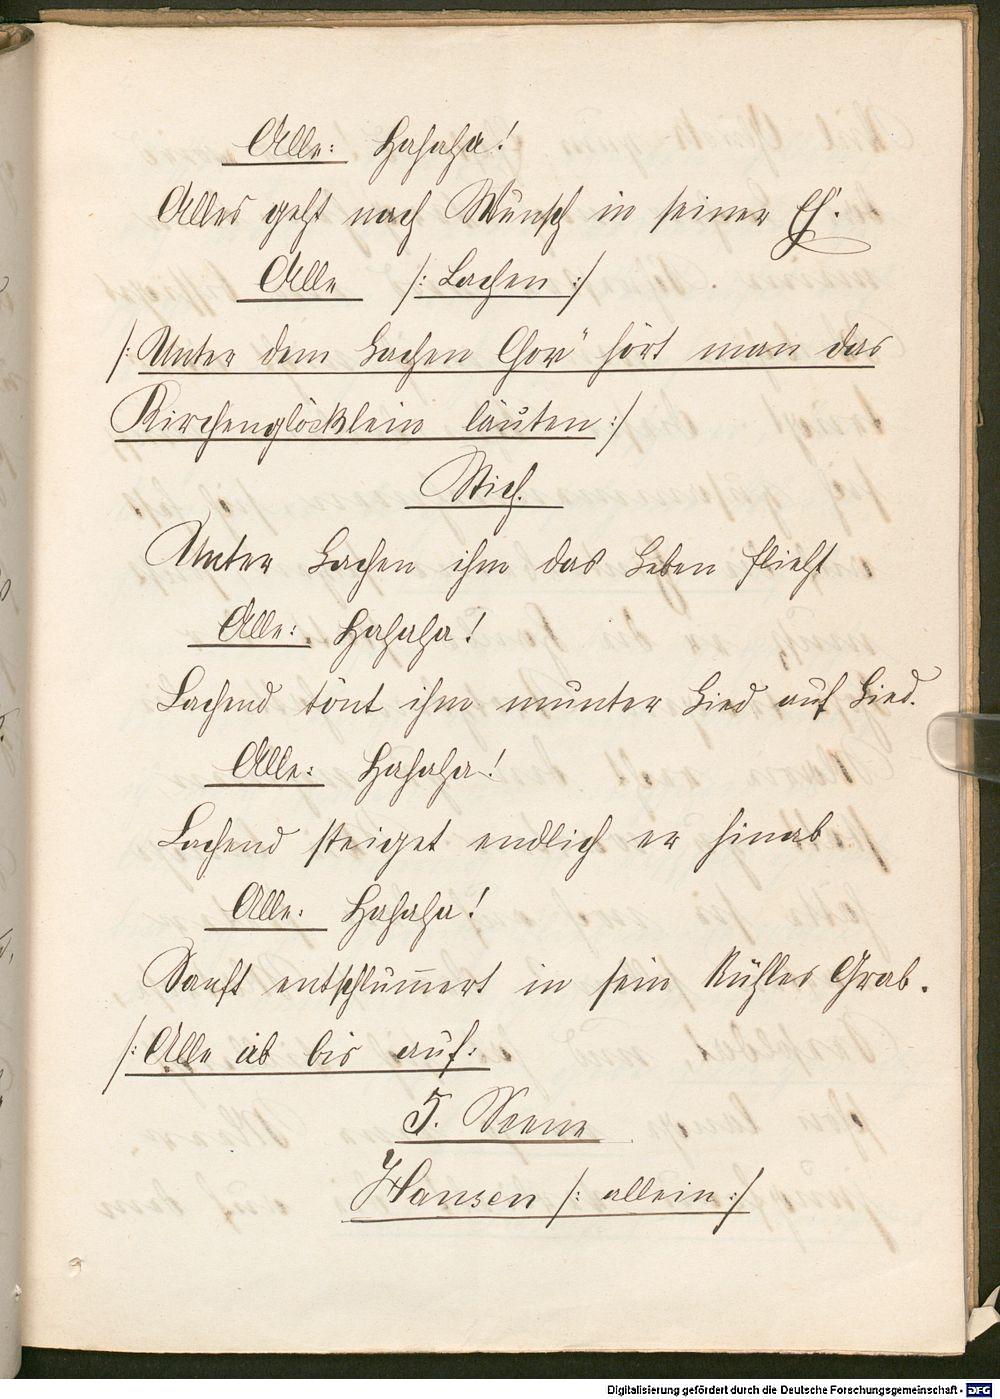 Alle: Hahaha!
Alles geht nach Wunsch in seiner Eh'.
Alle /: Lachen :/
/: Unter dem Lachen Chor" hört man das
Kirchenglöcklein läuten :/
Stich.
Unter Lachen ihm das Leben flieht
Alle: Hahaha!
Lachend tönt ihm munter Lied auf Lied.
Alle: Hahaha!
Lachend steiget endlich er hinab
Alle: Hahaha!
Sanft entschlum̅ert in sein kühles Grab.
/: Alle ab bis auf:
5. Scene
Hansen /: allein :/
Digitalisierung gefördert durch die Deutsche Forschungsgemeinschaft - DFG